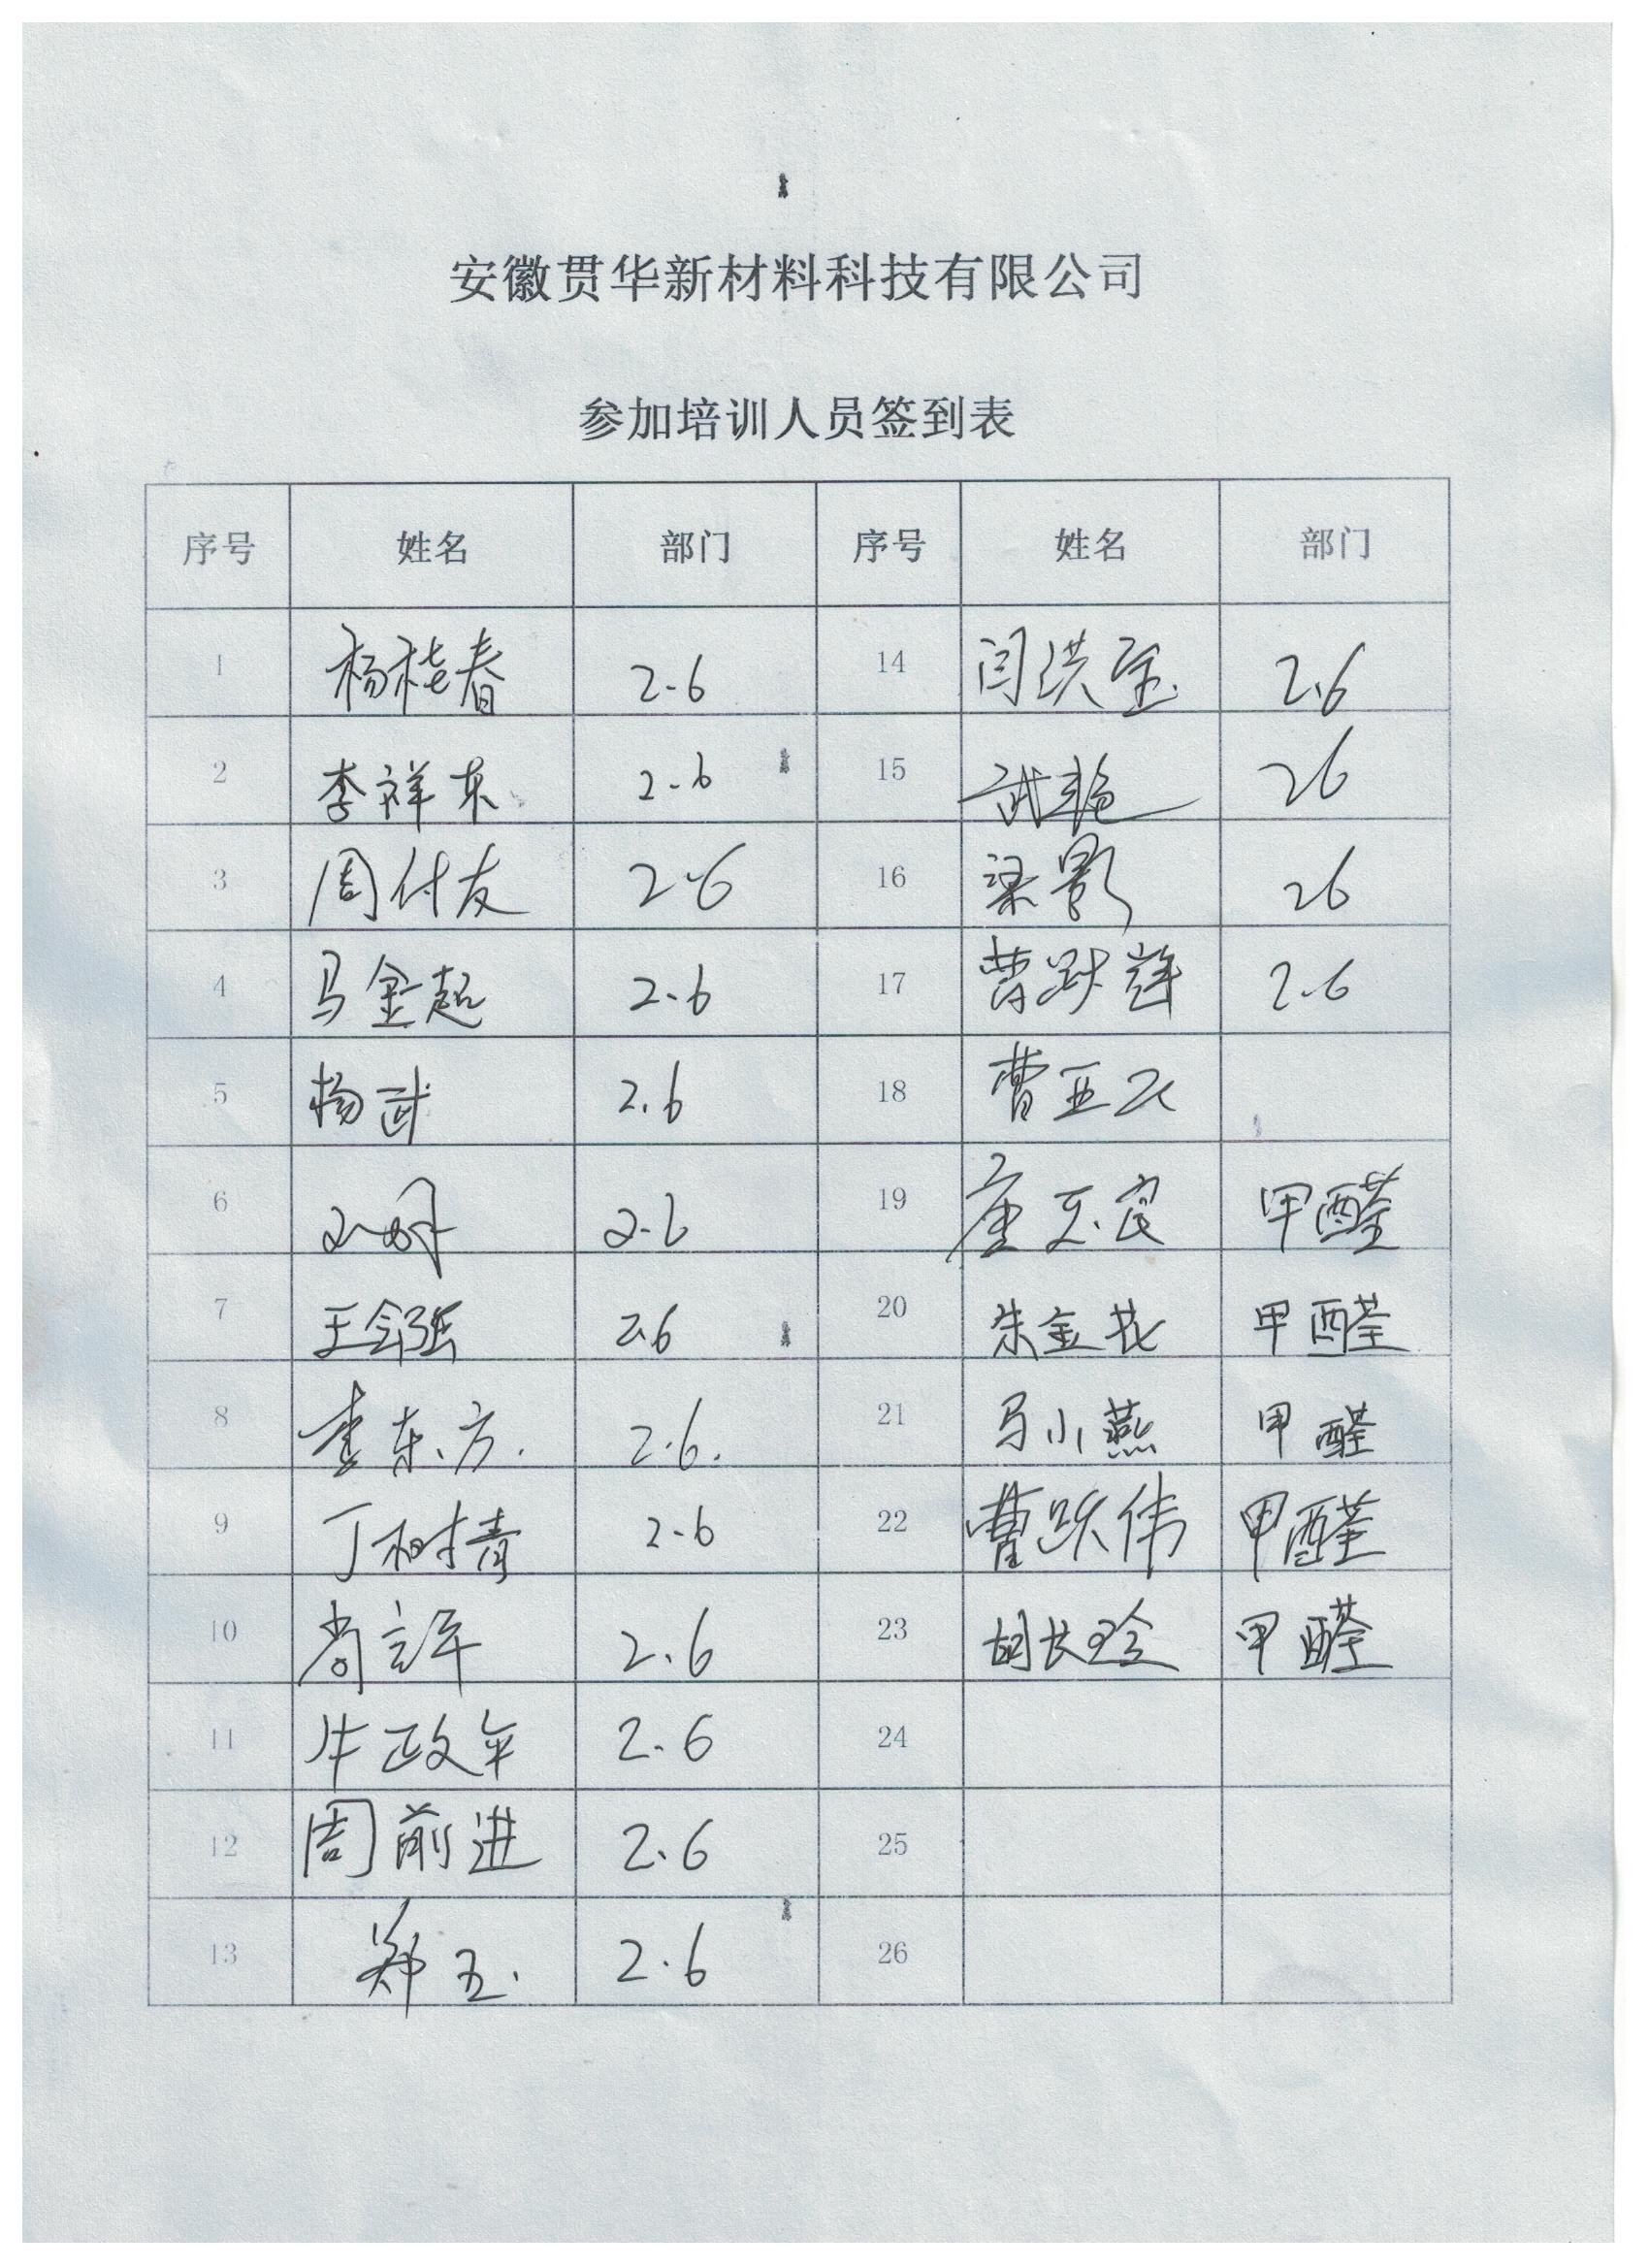 安徽贯华新材料科技有限公司
参加培训人员签到表
序号 姓名 部门 序号 姓名 部门
1 杨桂春 2.6 14 闫洪 2.6
2 李祥东 2.6 15 武艳 26
3 周付友 2.6 16 梁影 26
4 马金起 2.6 17 曹跃 2.6
5 杨武 2.6 18 曹亚云
6 2.6 19 良 甲醛
7 王会强 2.6 20 朱金花 甲醛
8 李东方. 2.6. 21 马小燕 甲醛
9 丁树青 2.6 22 曹跃伟 甲醛
10 尚 2.6 23 胡长玲 甲醛
11 牛政军 2.6 24
12 周前进 2.6 25
13 郑玉. 2.6 26